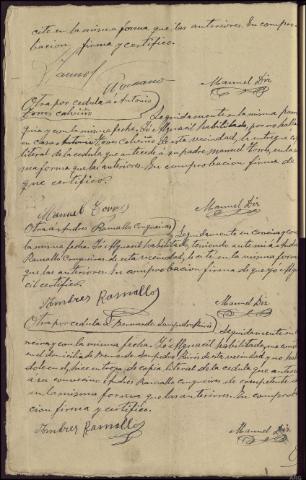 cite en la misma forma que las anteriores. En compro-
bacion firma y certifico.
Manuel Diz
Otra por cedula á Antonio
Torres Calviño
Seguidamente en la misma parro-
quia y con la misma fecha. Yó Alguacil habilitado, por no hallar
en casa Antonio Torres Calviño de esta vecindad, le entregué copia
literal de la cedula que antecede á su padre Manuel Torres, en la mis-
ma forma que las anteriores. En comprobacion firma de
que certifico.
Manuel Torres
Manuel Diz
Otra a Andres Ramallo Cerqueiras
Seguidamente en
la misma fecha. Yó Alguacil habilitado, teniendo ante mi á Andres
Ramallo Cerqueiras de esta vecindad, le cité en la misma forma
que las anteriores. En comprobacion firma de que yó Algua-
cil certifico.
Andres Ramallo
Manuel Diz
Otra por cedula á Bernardo Sampedro
Seguidamente en
y con la misma fecha. Yó Alguacil habilitado,
en el domicilio de Bernardo Sampedro de esta vecindad, y no hallan-
dole en él, hice entrega de copia literal de la cedula que antecede
á su convecino Andres Ramallo Cerqueiras de competente edad
en la misma forma que las anteriores. En comproba-
cion firma y certifico.
Andres Ramallo
Manuel Diz